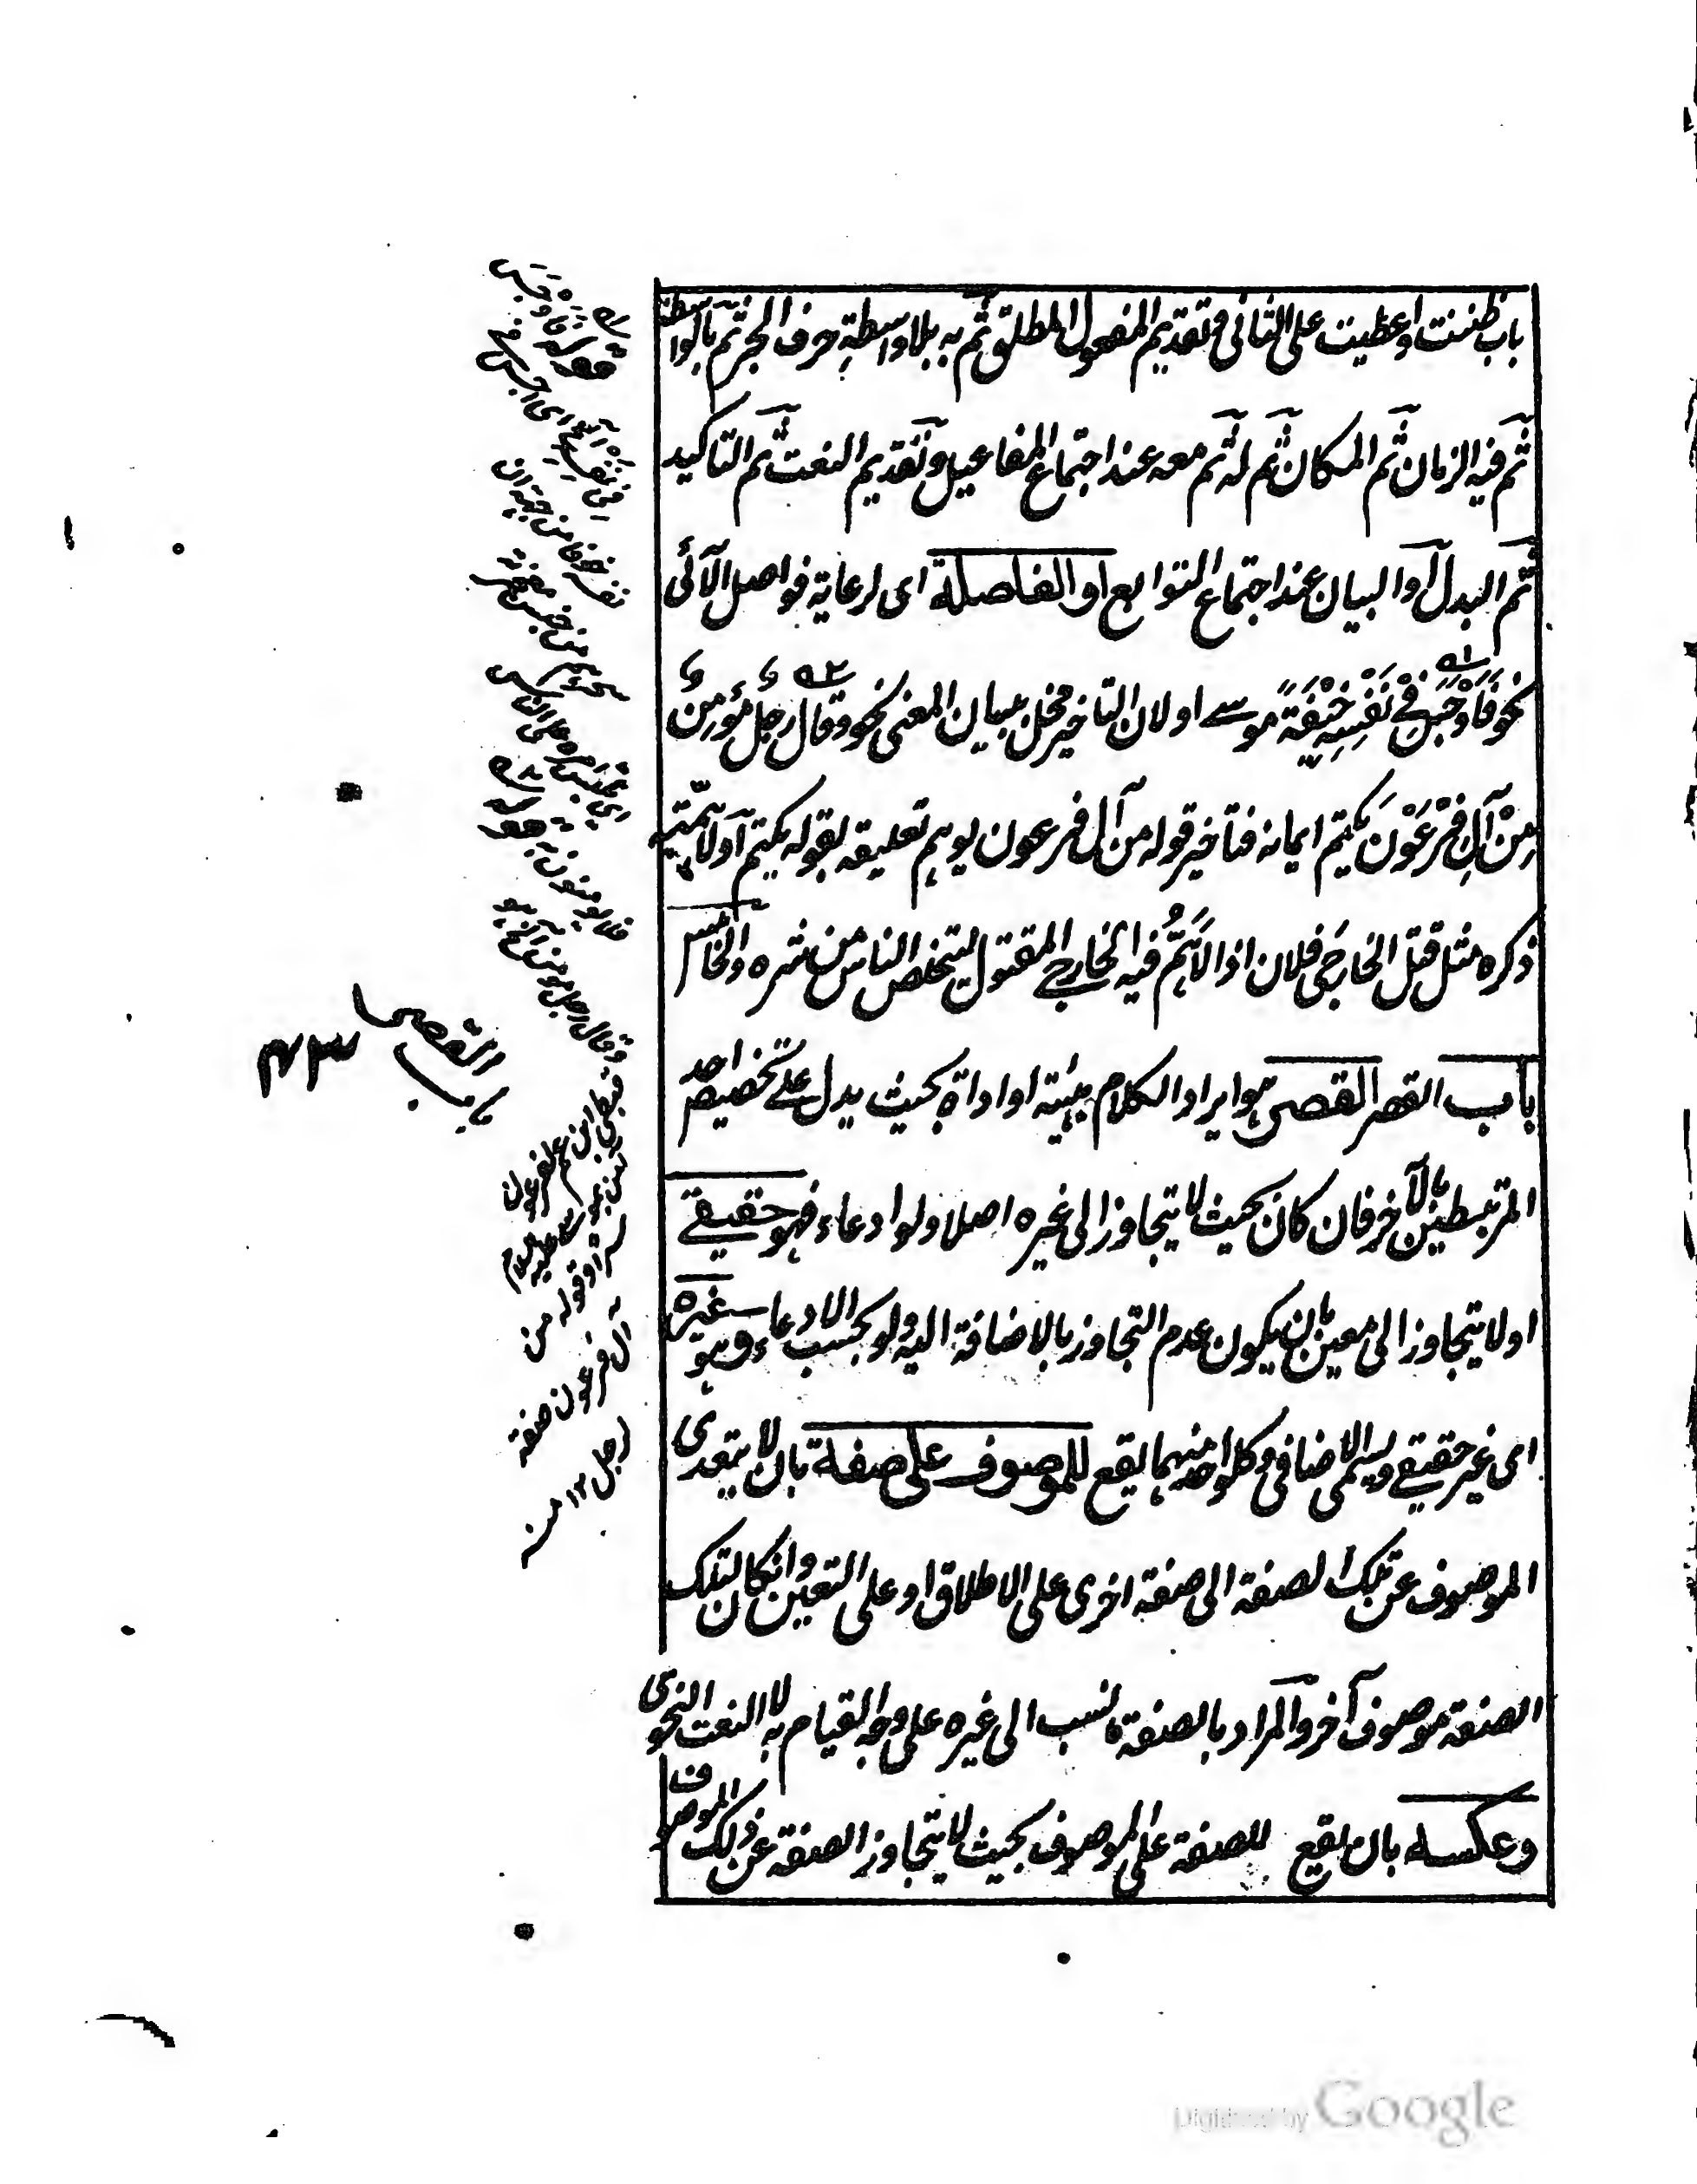 باب ظننت واعطيت على الثانى وتقديم المفعول المطلق ثم به بلا واسطةِ حرف الجر ثم بالواسطة
ثم فيه الزمان ثم المكان ثم له ثم معه عند اجتماع المفاعيل وتقديم النعت ثم التاكيد
ثم البدل او البيان عند اجتماع التوابع او الفاصلة اى لرعاية فواصل الآئى
نحو فَاَوْجَسَ فِىْ نَفْسِهٖ خِيْفَةً موسے او لان التاخير مخل ببيان المعنى نحو وقال رجل مؤمن
مِنْ آلِ فِرْعَوْنَ يكتم ايمانه فتاخير قوله من آل فرعون يوهم تعليقه بقوله يكتم اولاهمية
ذكره مثل قتل الخارجى فلان اذ الاَهَمُّ فيه الخارجے المقتول ليتخلص الناس من شره والخامس
باب القصر القصر هو ايراد الكلام بهيئة او اداة بحيث يدل علے تخصيص احد
المرتبطين بالآخر فان كان بحيث لا يتجاوز الى غيره اصلا ولو ادعاء فهو حقيقے
اولا يتجاوز الى معين بان يكون عدم التجاوز بالاضافة اليه ولو بحسب الادعاء وهو غيره
اى غير حقيقے ويسمى الاضافى وكل واحد منهما يقع للموصوف على صفة بان لا يتعدى
الموصوف عن تلك الصفة الى صفة اخرى على الاطلاق او على التعين وان كان لتلك
الصفة موصوف آخر والمراد بالصفة ما نسب الى غيره على وجه القيام به لا النعت النحوى
وعكسه بان يقع للصفة على الموصوف بحيث لا يتجاوز الصفة عن ذلك الموصوف
قوله فاوجس
وقال رجل مؤمن
قبطى ابن عم لفرعون
قوله من
آل فرعون صفة
رجل ١٢ منه
باب القصر
٤٣
Digitized by Google